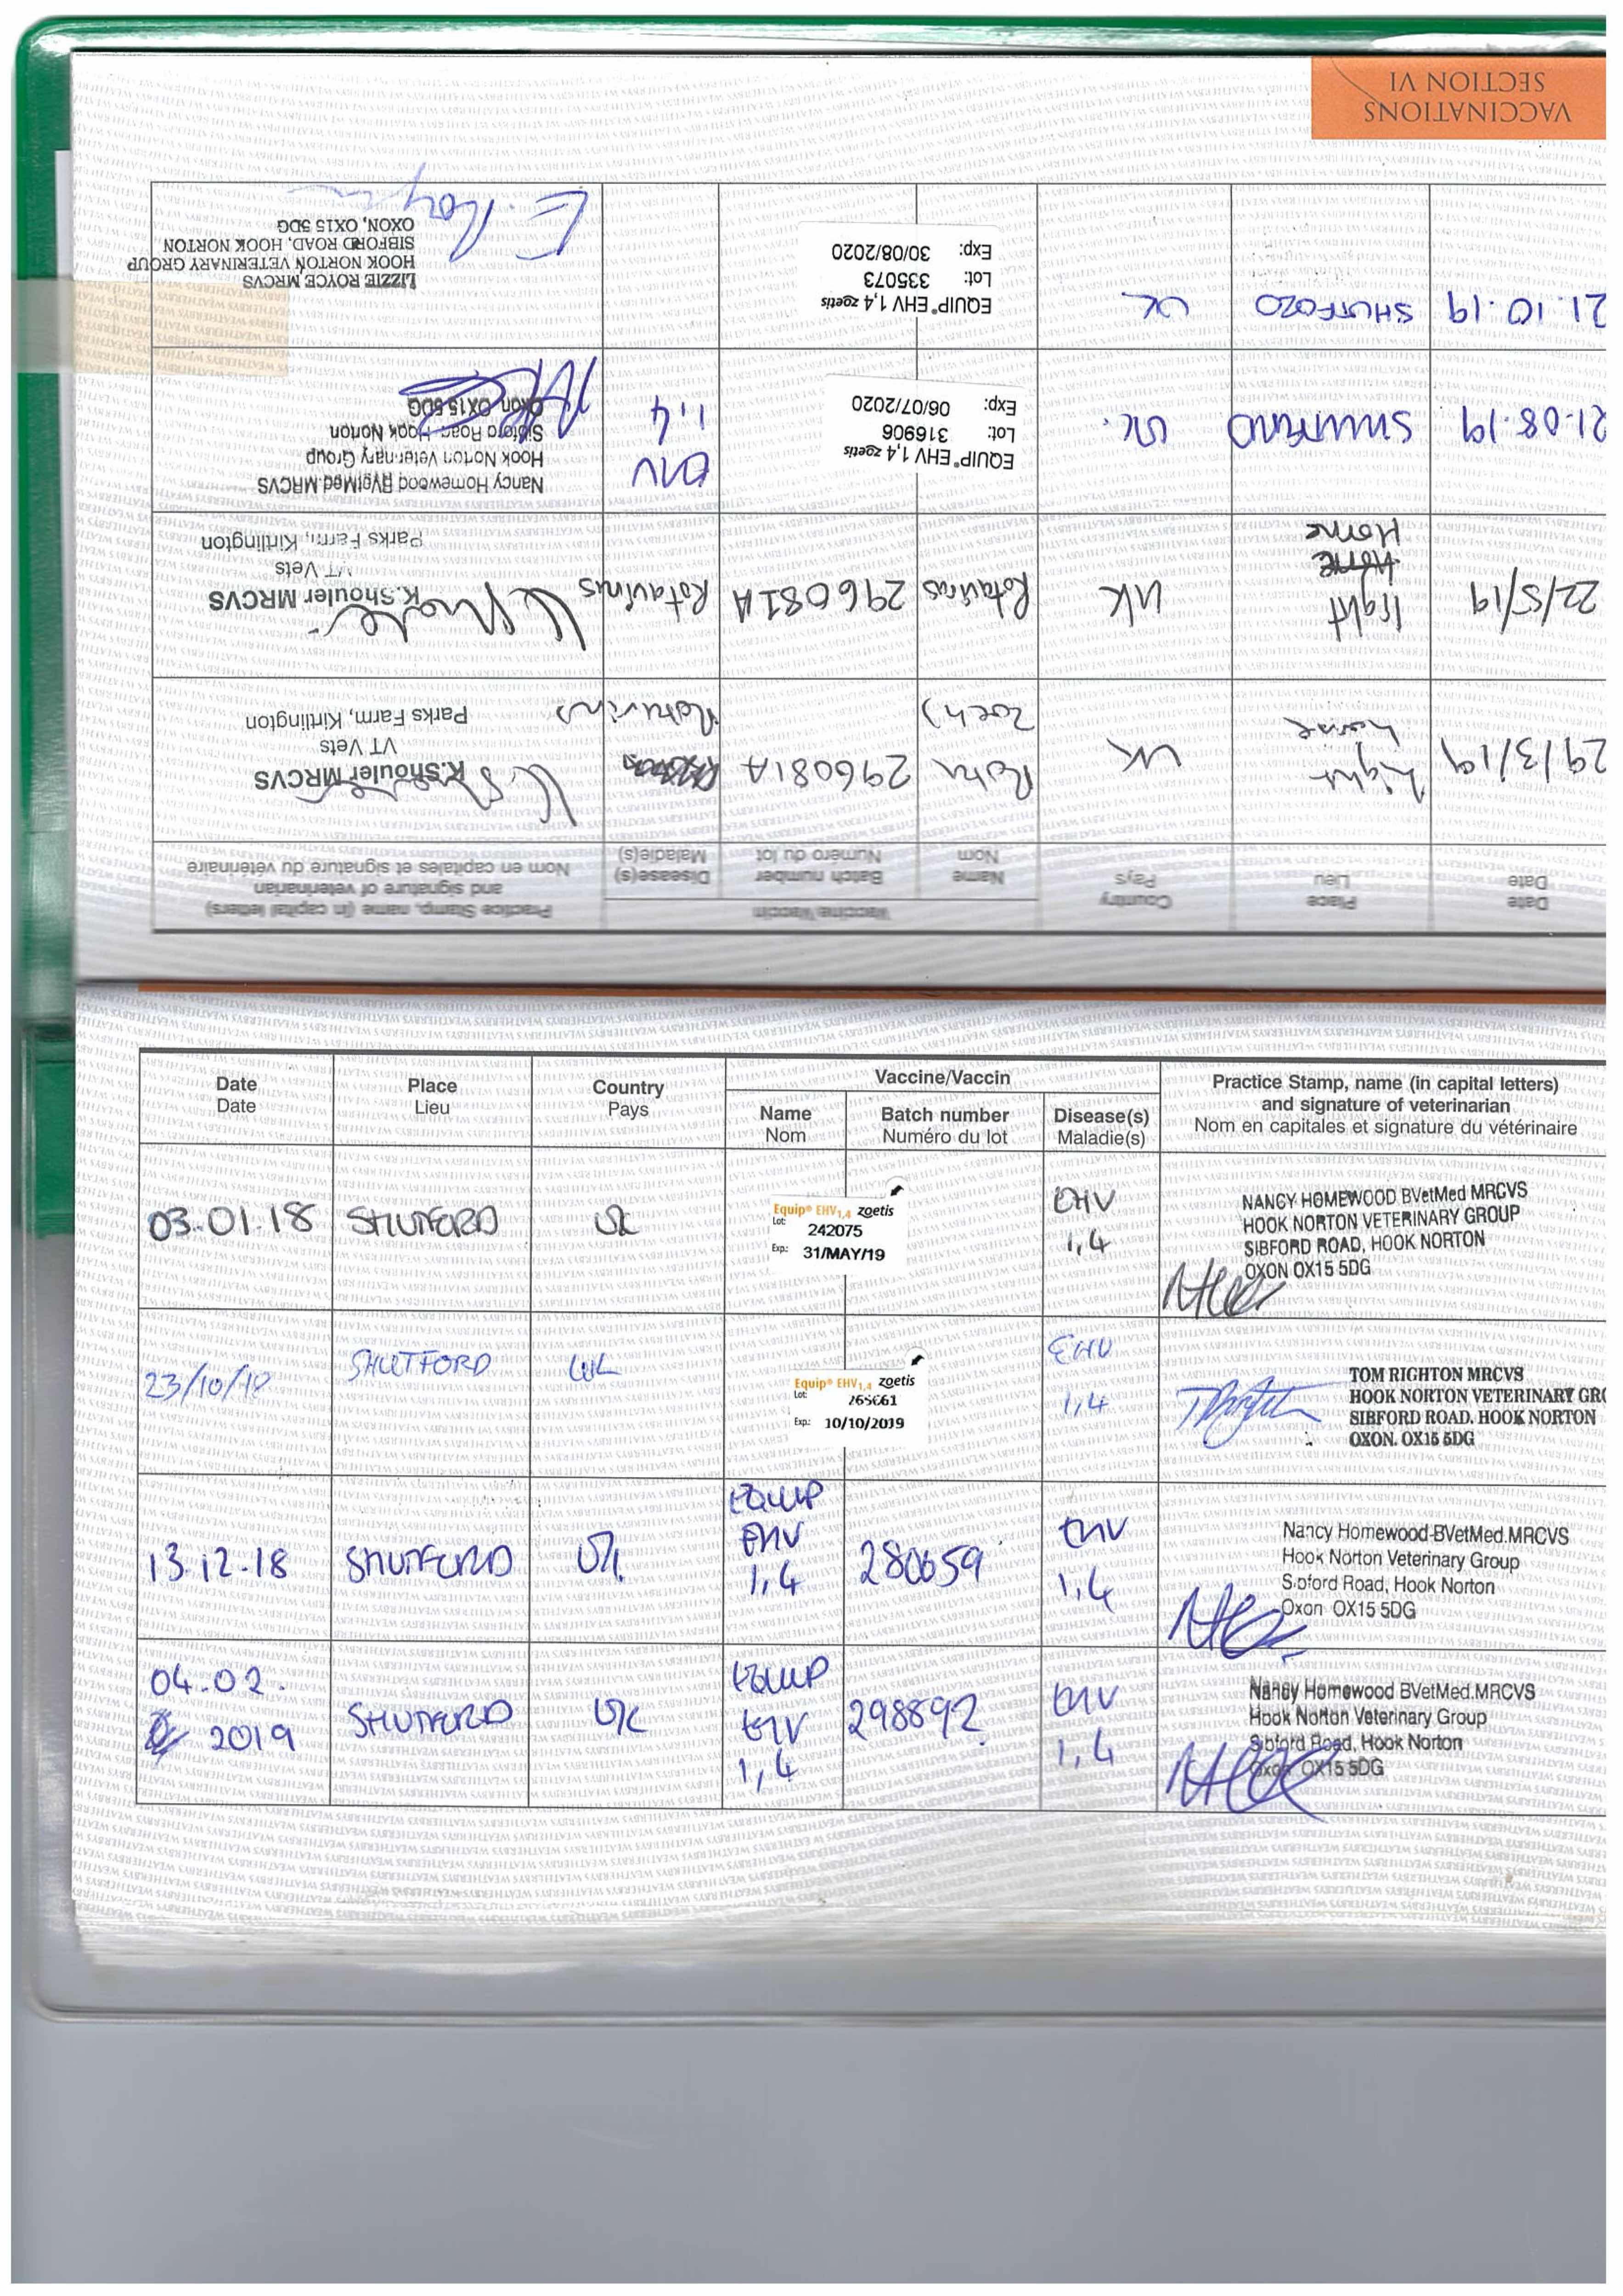 VACCINATIONS
SECTION VI
Date
Date
Place
Lieu
Country
Pays
Vaccine/Vaccin
Name
Nom
Batch number
Numéro du lot
Disease(s)
Maladie(s)
Practice Stamp, name (in capital letters)
and signature of veterinarian
Nom en capitales et signature du vétérinaire
29/3/19
UK
Rota
296081A
Rotavirus
K.Shouler MRCVS
VT Vets
Parks Farm, Kirtlington
22/5/19
Home
UK
Rotavirus
296081A
Rotavirus
K.Shouler MRCVS
VT Vets
Parks Farm, Kirtlington
21.08.19
SHUTFORD
UK.
EQUIP® EHV 1,4 zoetis
Lot: 316906
Exp: 06/07/2020
EHV
1,4
Nancy Homewood BVetMed.MRCVS
Hook Norton Veterinary Group
Sibford Road, Hook Norton
Oxon OX15 5DG
21.10.19
SHUTFORD
UK
EQUIP® EHV 1,4 zoetis
Lot: 335073
Exp: 30/08/2020
LIZZIE ROYCE MRCVS
HOOK NORTON VETERINARY GROUP
SIBFORD ROAD, HOOK NORTON
OXON, OX15 5DG
E. Royce
Date
Date
Place
Lieu
Country
Pays
Vaccine/Vaccin
Name
Nom
Batch number
Numéro du lot
Disease(s)
Maladie(s)
Practice Stamp, name (in capital letters)
and signature of veterinarian
Nom en capitales et signature du vétérinaire
03.01.18
SHUTFORD
UK
Equip® EHV1,4 zoetis
Lot: 242075
Exp: 31/MAY/19
EHV
1,4
NANCY HOMEWOOD BVetMed MRCVS
HOOK NORTON VETERINARY GROUP
SIBFORD ROAD, HOOK NORTON
OXON OX15 5DG
23/10/18
SHUTFORD
UK
Equip® EHV1,4 zoetis
Lot: 265661
Exp: 10/10/2019
EHV
1,4
TOM RIGHTON MRCVS
HOOK NORTON VETERINARY GRO
SIBFORD ROAD. HOOK NORTON
OXON. OX15 5DG
13.12.18
SHUTFORD
UK.
EQUIP
EHV
1,4
280659
EHV
1,4
Nancy Homewood BVetMed.MRCVS
Hook Norton Veterinary Group
Sibford Road, Hook Norton
Oxon OX15 5DG
04.02.
2019
SHUTFORD
UK
EQUIP
EHV
1,4
298892
EHV
1,4
Nancy Homewood BVetMed.MRCVS
Hook Norton Veterinary Group
Sibford Road, Hook Norton
Oxon OX15 5DG